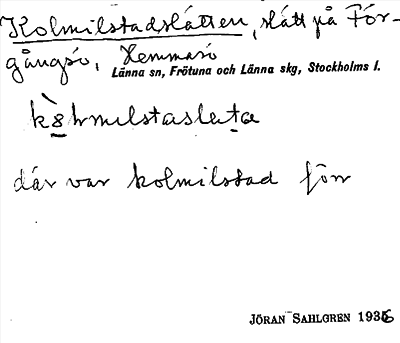 Kolmilstadslåtten, slått på För-
gångsö, Hemmarö
Länna sn, Frötuna och Länna skg, Stockholms l.
där var kolmilstad förr
JÖRAN SAHLGREN 1936